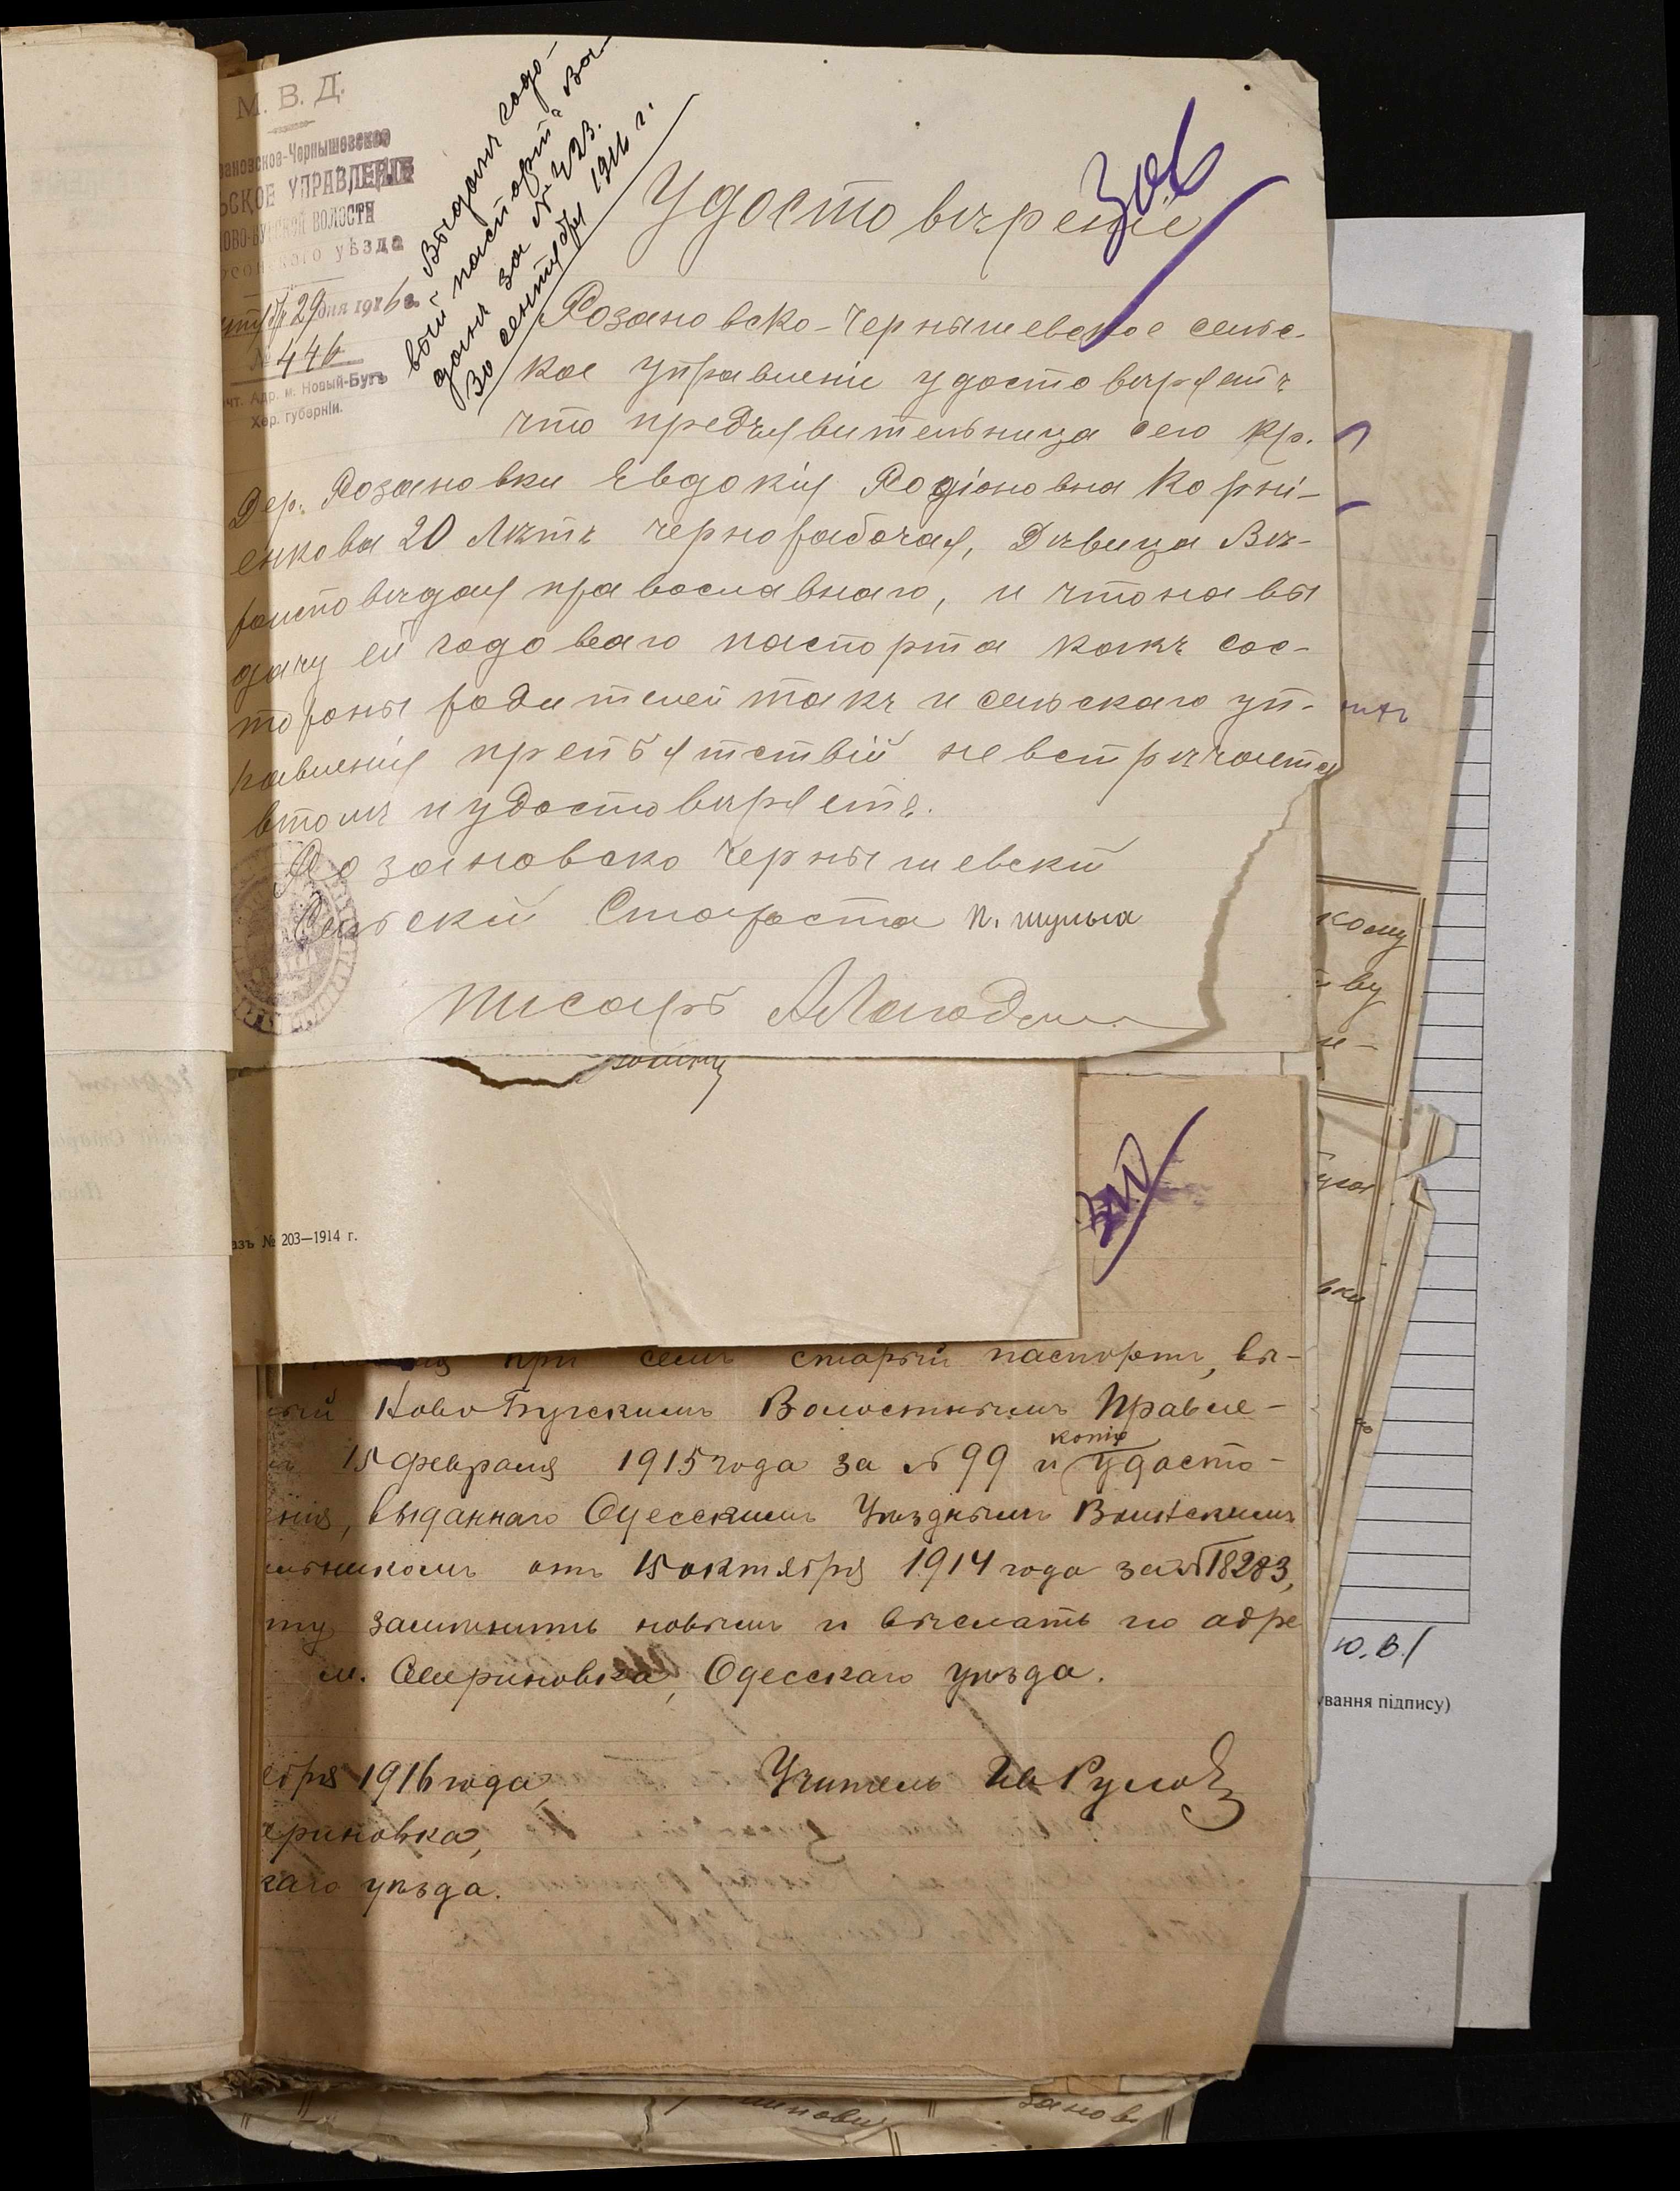 М. В. Д.
ановское-Чернышевское
ьское УПРАВЛЕНІЕ
ОВО-БУГСКОЙ ВОЛОСТИ
рсонского уѣзда
29 дня 1916 г.
№ 446
чт. Адр. м. Новый-Бугъ
Хер. губерніи.
Выданъ годо-
вый паспортъ Ва-
за № 423.
30 сентября 1916 г.
Удостовѣреніе
Розановско-Чернышевское сельс-
кое управленіе удостовѣряетъ
что предъявительница сего кр.
дер. Розановки Евдокія Родіоновна Корні-
енкова 20 лѣтъ чернорабочая, Дѣвица Вѣ-
роисповѣдая православнаго, и что на вы
дачу ей годоваго паспорта какъ сос-
тороны родителей такъ и сельскаго уп-
равленія препятствій невстрѣчаетса
втомъ и удостовѣряетъ.
Розановско Чернышевскій
Сельскій Староста П. Шульга
Писарь
азъ № 203—1914 г.
при семъ старый паспортъ, вы-
ный Ново Бугскимъ Волостнымъ Правле-
15 февраля 1915 года за № 99 и копію удосто-
енія, выданнаго Одесскимъ Уѣзднымъ Воинскимъ
альникомъ отъ 15 октября 1914 года за № 18283,
шу замѣнить новымъ и выслать по адре
м. Севериновка, Одесскаго уѣзда.
ября 1916 года,
Учитель
ериновка,
каго уѣзда.
кому
ву
вки
Ю.В./
ування підпису)
занов.